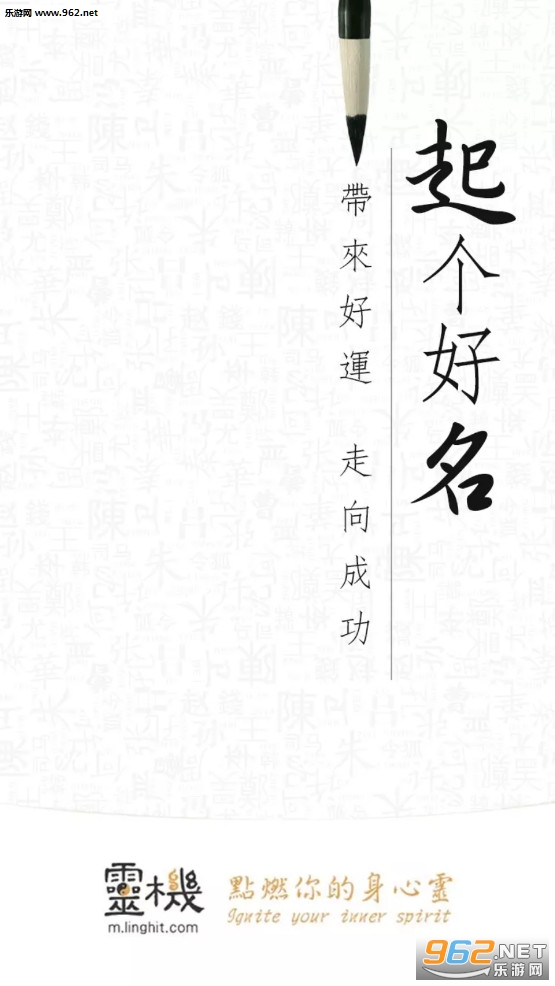 乐游网 www.962.net
起个好名
帶來好運 走向成功
靈機
m.linghit.com
點燃你的身心靈
Ignite your inner spirit
962.NET
乐游网